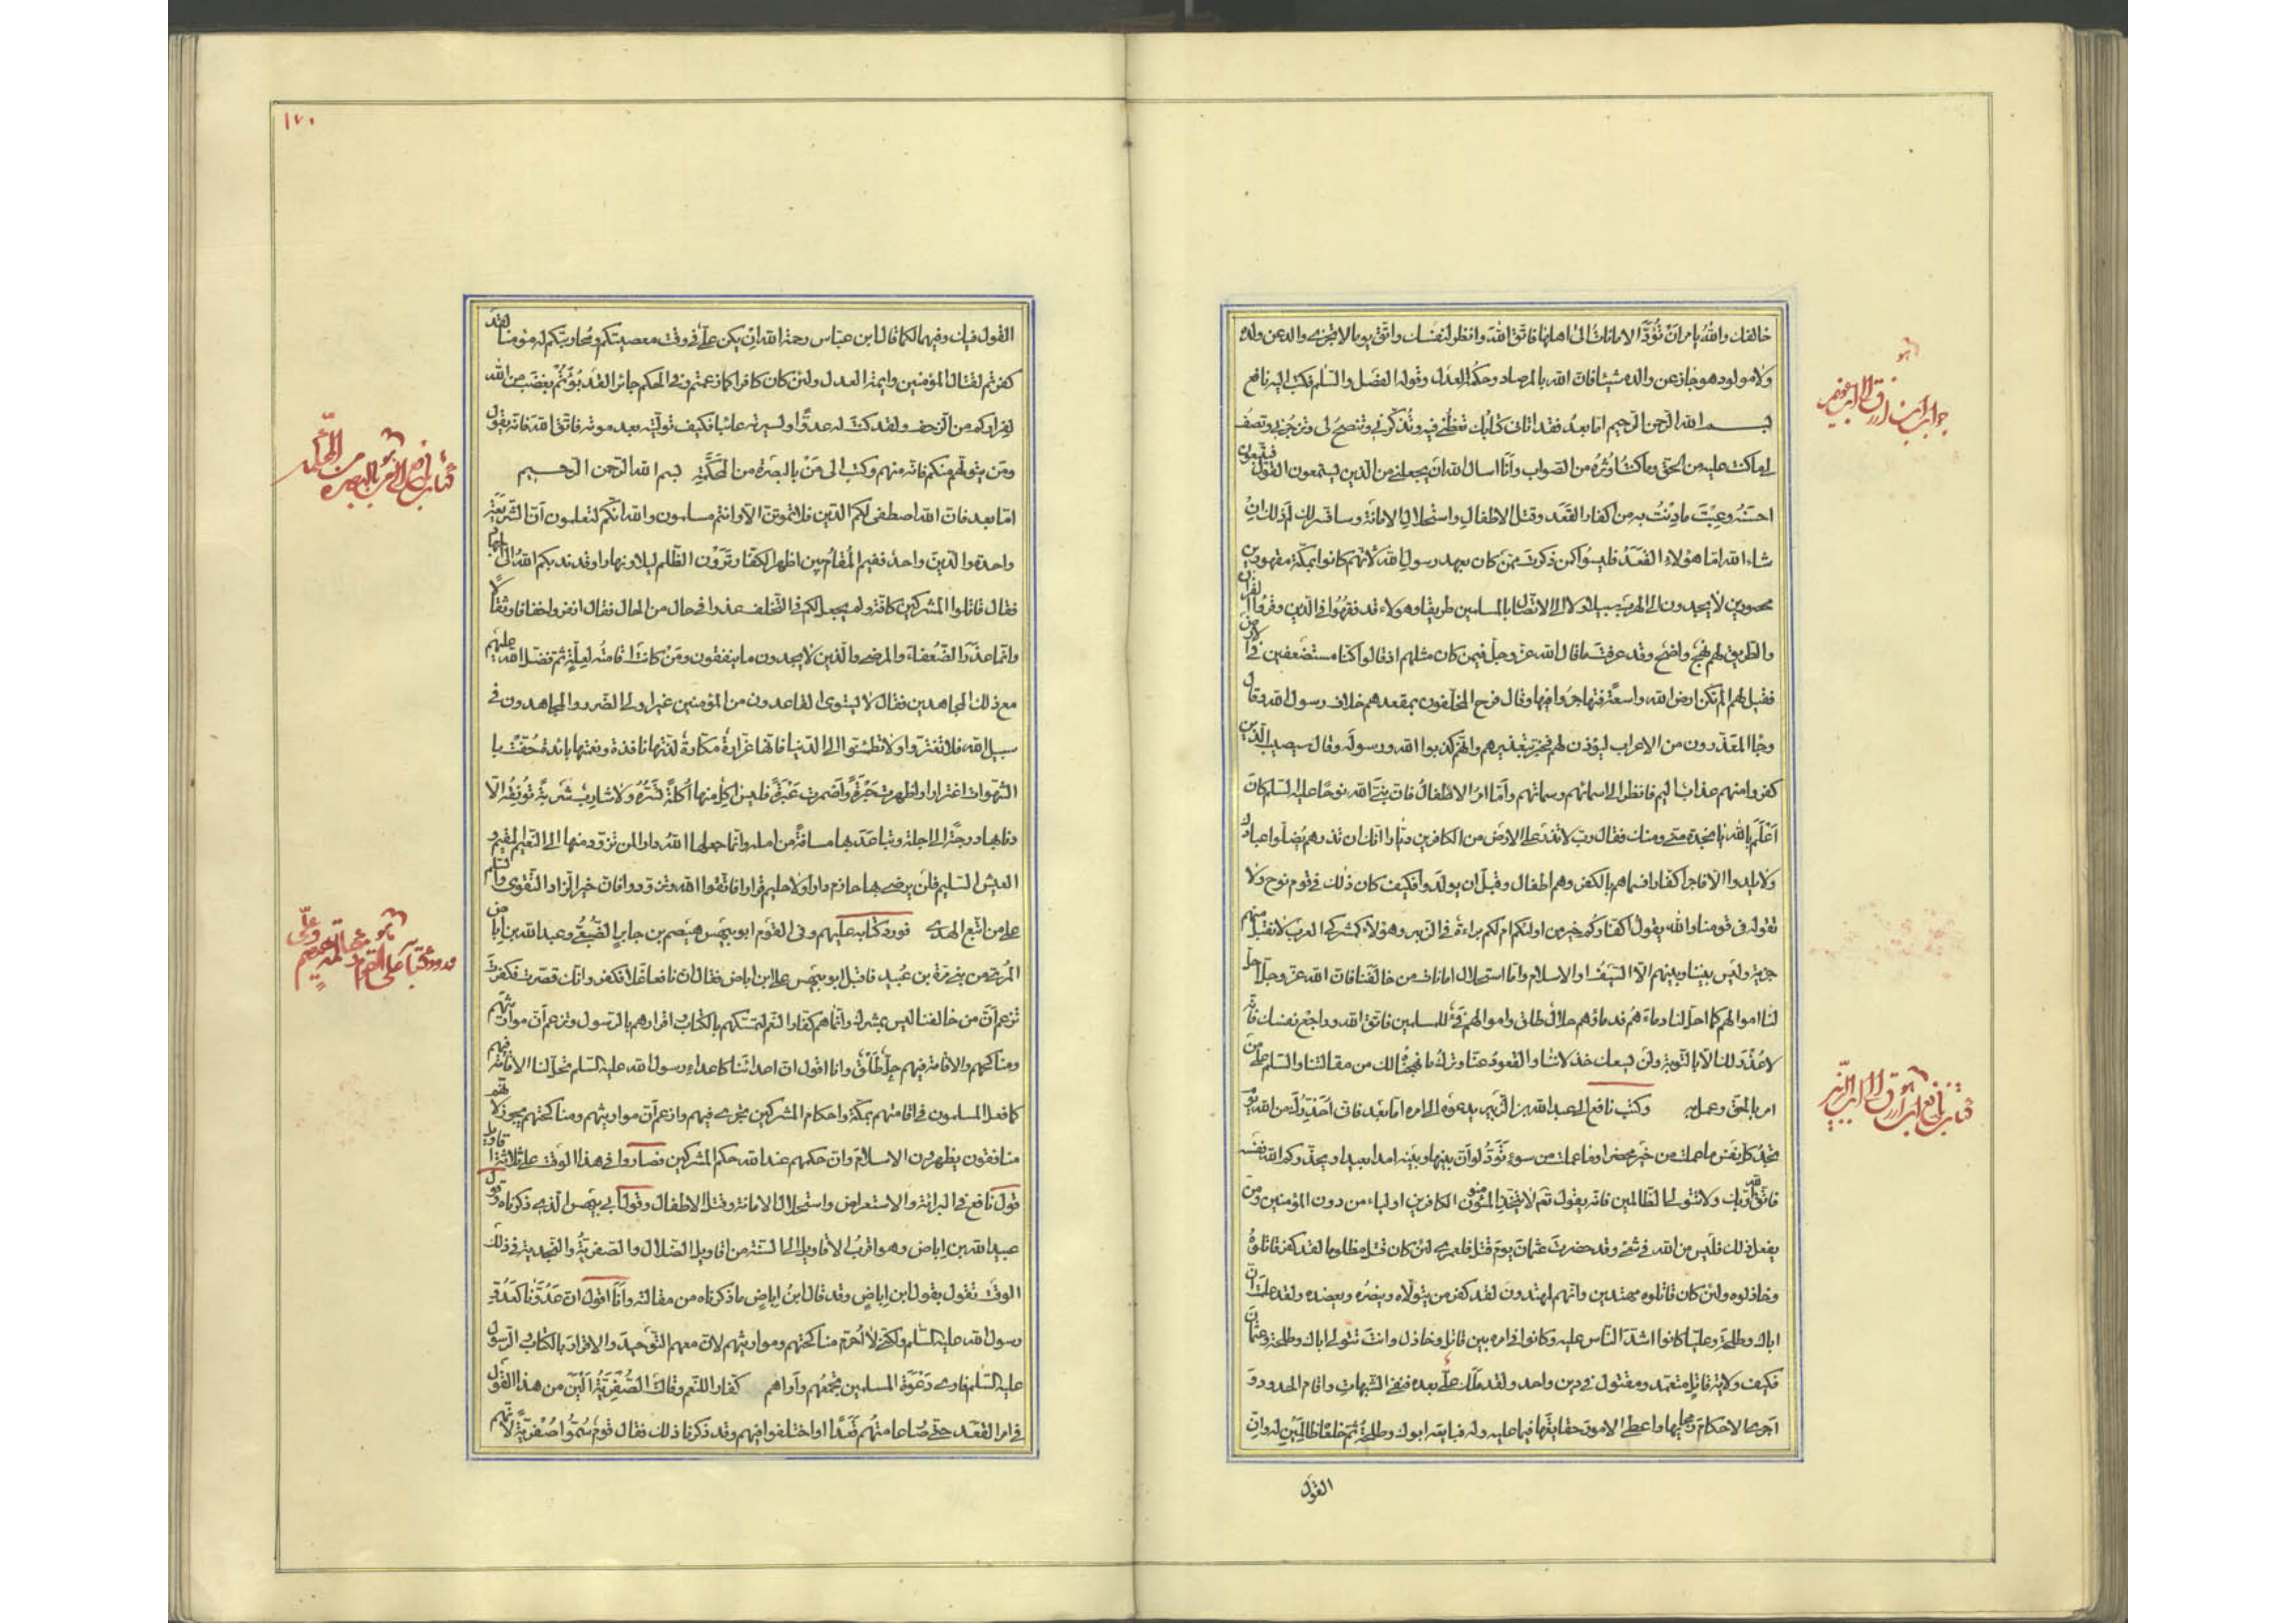 خالفك والله يامر ان تُؤدَّ الامانات الى اهلها فاتق الله وانظر لنفسك واتق يوما لا يجزى والد عن ولده
ولا مولود هو جاز عن والده شيئا فان الله بالمرصاد وحكمه العدل وقوله الفصل والسلم فكتب اليه نافع
بسم الله الرحمن الرحيم اما بعد فقد اتانى كتابك تعظنى فيه وتذكرنى وتنصح لى وتزجرنى وتصف
لى ما كنت عليه من الحق وما كنت اوثره من الصواب وانا اسال الله ان يجعلنى من الذين يستمعون القول فيتبعون
احسنه وعبت ما دنت به من اكفار القعد وقتل الاطفال واستحلال الامانة وسافسر لك لم ذلك ان
شاء الله اما هؤلاء القعد فليسوا كمن ذكرت ممن كان بعهد رسول الله لانهم كانوا بمكة مقهورين
محصورين لا يجدون الى الهرب سبيلا ولا الى الاتصال بالمسلمين طريقا وهولاء قد فقهوا فى الدين وقرءوا القران
والطريق لهم نهج واضح وقد عرفت ما قال الله عز وجل فيمن كان مثلهم اذ قالوا كنا مستضعفين فى الارض
فقيل لهم الم تكن ارض الله واسعة فتهاجروا فيها وقال فرح المخلفون بمقعدهم خلاف رسول الله وقال
وجاا المعذرون من الاعراب ليؤذن لهم فخبر بتعذيرهم وانهم كذبوا الله ورسوله وقال سيصيب الذين
كفروا منهم عذاب اليم فانظر الى اسمائهم وسماتهم واما امر الاطفال فان نبى الله نوحا عليه السلم كان
اعلم بالله يا نجدة منى ومنك فقال رب لا تذر على الارض من الكافرين ديارا انك ان تذرهم يضلوا عبادك
ولا يلدوا الا فاجرا كفارا فسماهم بالكفر وهم اطفال وقبل ان يولدوا فكيف كان ذلك فى قوم نوح ولا
نقوله فى قومنا والله يقول اكفاركم خير من اولئكم ام لكم براءة فى الزبر وهؤلاء كمشركى العرب لا نقبل منهم
جزية وليس بيننا وبينهم الا السيف او الاسلام واما استحلال امانات من خالفنا فان الله عز وجل احل
لنا اموالهم كما احل لنا دماءهم فدماؤهم حلال طلق واموالهم فئ للمسلمين فاتق الله وراجع نفسك فانه
لا عذر لك الا بالتوبة ولن يسعك خذلاننا والقعود عنا وترك ما نهجناه لك من مقالتنا والسلم على من
امر بالحق وعمل به وكتب نافع الى عبد الله بن الزبير يدعوه الى امره اما بعد فانى احذرك من الله يوم
تجد كل نفس ما عملت من خير محضرا وما عملت من سوء تود لو ان بينها وبينه امدا بعيدا ويحذركم الله نفسه
فاتق الله ربك ولا تتولى الظالمين فانه يقول نعم لا يتخذ المؤمنون الكافرين اولياء من دون المؤمنين ومن
يفعل ذلك فليس من الله فى شئ وقد حضرت عثمان يوم قتل فلعمرى لئن كان قتل مظلوما لقد كفر قاتلوه
وخاذلوه ولئن كان قاتلوه مهتدين وانهم لمهتدون لقد كفر من يتولاه وينصره ويعضده ولقد علمت ان
اباك وطلحة وعليا كانوا اشد الناس عليه وكانوا فى امره بين قاتل وخاذل وانت تتولى اباك وطلحة وعثمان
فكيف ولاية قاتل متعمد ومقتول فى دين واحد ولقد ملك على بعده فنفى الشبهات واقام الحدود و
اجرى الاحكام مجاريها واعطى الامور حقايقها فيما عليه وله فبايعه ابوك وطلحة ثم خلعاه ظالمين له وان
القول
جواب ابن ازرق الى ابن عويمر
كتاب نافع ابن ازرق الى ابن الزبير
١٧٠
القول فيك وفيهما لكما قال ابن عباس رحمه الله ان يكن على فى وقت معصيتكم ومحاربتكم له مومنا لقد
كفرتم لقتال المؤمنين وايمة العدل ولئن كان كافرا كما زعمتم وفى الحكم جائرا لقد بؤتم بغضب من الله
لفراركم من الزحف ولقد كنت له عدوا ولسيرته عائبا فكيف توليته بعد موته فاتق الله فانه يقول
ومن يتولهم منكم فانه منهم وكتب الى من بالبصرة من المحكمة بسم الله الرحمن الرحيم
اما بعد فان الله اصطفى لكم الدين فلا تموتن الا وانتم مسلمون والله انكم لتعلمون ان الشريعة
واحدة والدين واحد ففيم المقام بين اظهر الكفار وترون الظلم ليلا ونهارا وقد ندبكم الله الى الجهاد
فقال قاتلوا المشركين كافة ولم يجعل لكم فى التخلف عذرا فى حال من الحال فقال انفروا خفافا وثقالا
وانما عذر الضعفاء والمرضى والذين لا يجدون ما ينفقون ومن كانت اقامته لعلة ثم فضل الله عليهم
مع ذلك المجاهدين فقال لا يستوى القاعدون من المؤمنين غير اولى الضرر والمجاهدون فى
سبيل الله فلا تغتروا ولا تطمئنوا الى الدنيا فانها غرارة مكارة لذتها نافدة ونعمتها بائدة حفت با
الشهوات اغترارا واظهرت حبرة واضمرت عبرة فليس اكل منها اكلة تسره ولا شارب شربة تونقه الا
دنا بها درجة الى اجله وتباعد بها مسافة من امله وانما جعلها الله دارا لمن تزود منها الى النعيم المقيم و
العيش السليم فلن يرضى بها حازم دارا ولا حليم قرارا فاتقوا الله وتزودوا فان خير الزاد التقوى والسلم
على من اتبع الهدى فورد كتابه عليهم وفى القوم ابو بيهس هيصم بن جابر الضبعى وعبد الله بن اباض
المرى من بنى مرة بن عبيد فاقبل ابو بيهس على ابن اباض فقال ان نافعا غلا فكفر وانك قصرت فكفرت
تزعم ان من خالفنا ليس بمشرك وانما هم كفار النعم لتمسكهم بالكتاب واقرارهم بالرسول وتزعم ان مواريثهم
ومناكحهم والاقامة فيهم حل طلق وانا اقول ان اعداءنا كاعداء رسول الله عليه السلم تحل لنا الاقامة فيهم
كما فعل المسلمون فى اقامتهم بمكة واحكام المشركين تجرى فيهم وازعم ان مواريثهم ومناكحتهم تجوز لانهم
منافقون يظهرون الاسلام وان حكمهم عند الله حكم المشركين فصاروا فى هذا الوقت على ثلاثة اقاويل
قول نافع فى البرائة والاستعراض واستحلال الامانة وقتل الاطفال وقول ابى بيهس الذى ذكرناه وقول
عبد الله بن اباض وهو اقرب الاقاويل الى السنة من اقاويل الضلال والصفرية والنجدية فى ذلك
الوقت تقول بقول ابن اباض وقد قال ابن اباض ما ذكرناه من مقالته وانا اقول ان عدونا كعدو
رسول الله عليه السلم ولكنى لا احرم مناكحتهم ومواريثهم لان معهم التوحيد والاقرار بالكتاب والرسول
عليه السلم فارى دعوة المسلمين تجمعهم واراهم كفارا للنعم وقالت الصفرية الين من هذا القول
فى امر القعد حتى صار عامتهم قعدا واختلفوا فيهم وقد ذكرنا ذلك فقال قوم سموا صفرية لانهم
كتاب نافع الى من بالبصرة من المحكمة